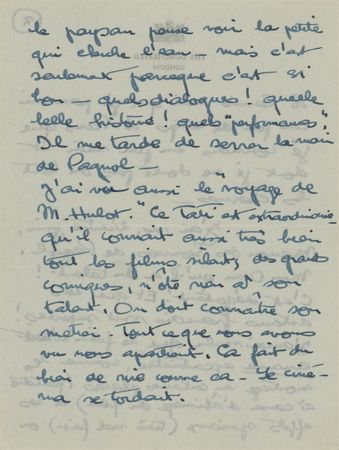 le paysan pense voir la petite
qui cherche l'eau — mais c'est
seulement parceque c'est si
bon — quels dialogues! quelle
belle histoire! quels "performances".
Il me tarde de serrer la main
de Pagnol —
J'ai vu aussi le "voyage de
M. Hulot." Ce Tati est extraordinaire
qu'il connait aussi très bien
tout les films muets, des grands
comiques, n'ôte rien à son
talent. On doit connaître son
métier. Tout ce que nous avons
vu nous apartient. Ca fait du
bien de rire comme ca — Le ciné-
ma se tordait.